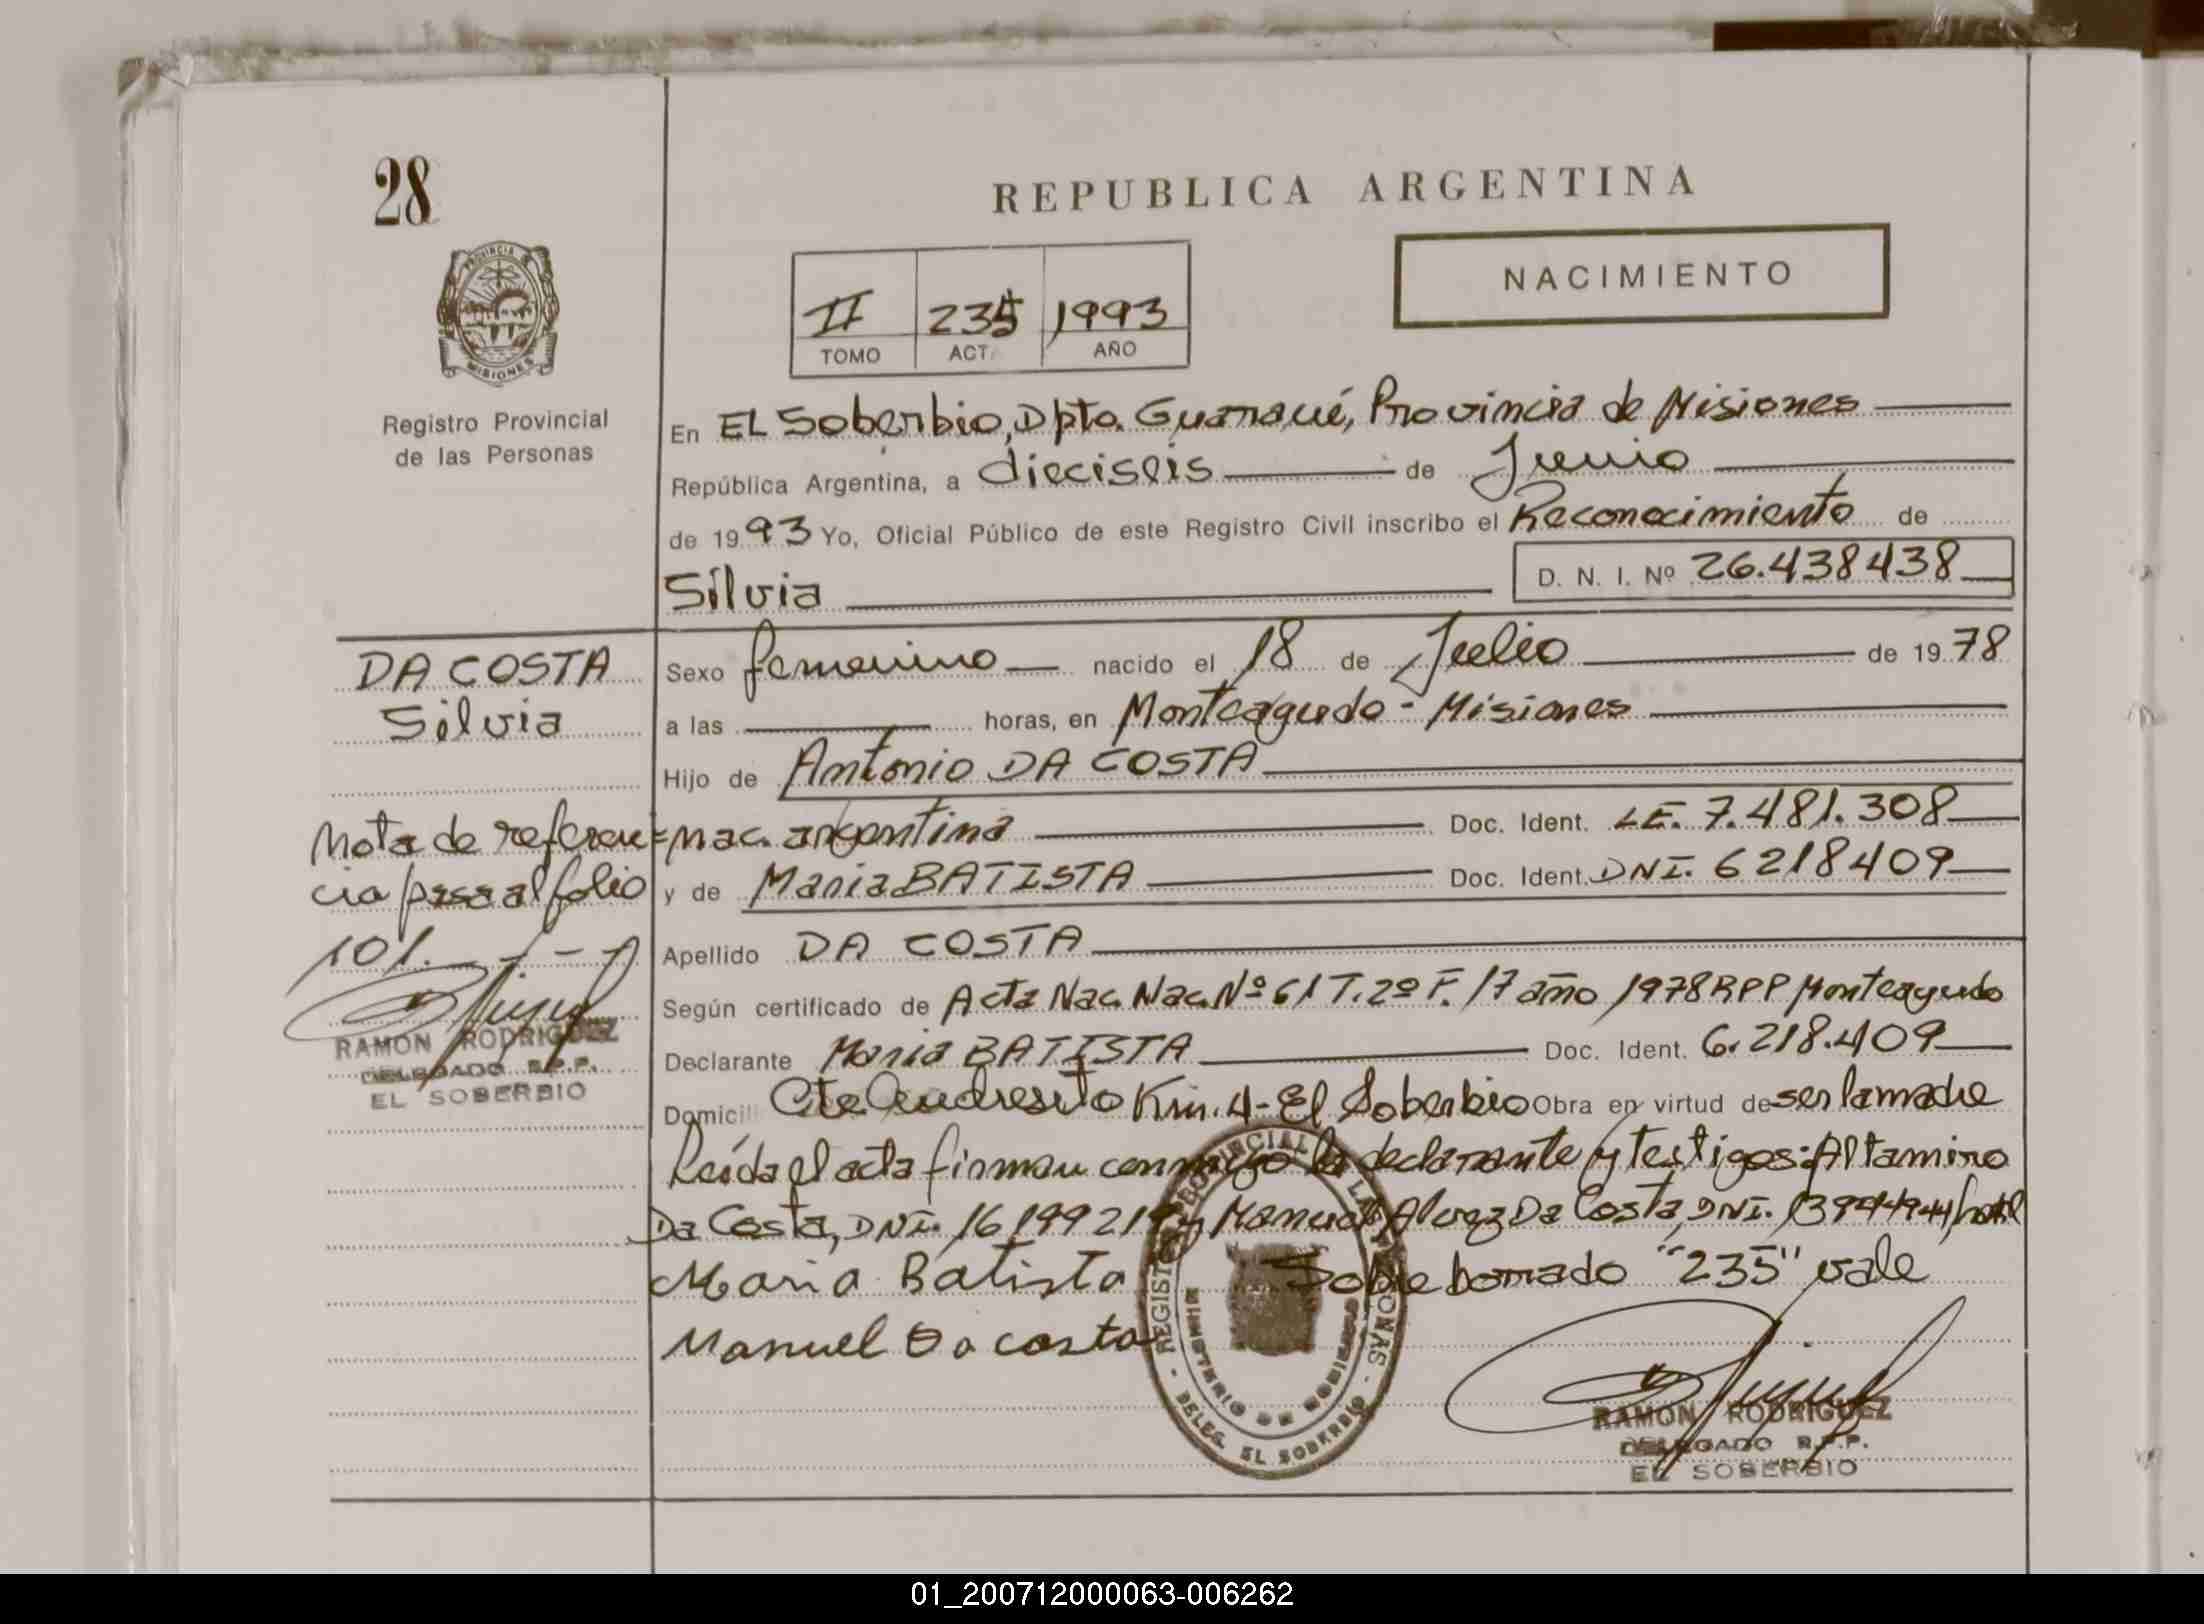 28
REPUBLICA ARGENTINA
NACIMIENTO
II 235 1993
TOMO ACTA AÑO
PROVINCIA DE
MISIONES
Registro Provincial
de las Personas
En EL Soberbio, Dpto. Guaraní, Provincia de Misiones
República Argentina, a dieciseis de Junio
de 1993 Yo, Oficial Público de este Registro Civil inscribo el Reconocimiento de
Silvia D. N. I. Nº 26.438438
DA COSTA
Silvia
Sexo femenino nacido el 18 de Julio de 1978
a las horas, en Monteagudo - Misiones
Hijo de Antonio DA COSTA
nac. argentina Doc. Ident. LE. 7.481.308
y de Maria BATISTA Doc. Ident. DNI. 6218409
Nota de referen=
cia pasa al folio
101.
RAMON RODRIGUEZ
DELEGADO R.P.P.
EL SOBERBIO
Apellido DA COSTA
Según certificado de Acta Nac. Nac. Nº 61 T. 2º F. 17 año 1978 RPP Monteagudo
Declarante Maria BATISTA Doc. Ident. 6.218.409
Domicili Cte Andresito Km. 4 - El Soberbio Obra en virtud de ser la madre
Leída el acta firman conmigo la declarante y testigos: Altamiro
Da Costa, DNI. 16199219 y Manuel Alvez Da Costa, DNI.
Maria Batista Sobre borrado "235" vale
Manuel Da costa
REGISTRO PROVINCIAL DE LAS PERSONAS
MINISTERIO DE GOBIERNO
DELEG. EL SOBERBIO
RAMON RODRIGUEZ
DELEGADO R.P.P.
EL SOBERBIO
01_200712000063-006262